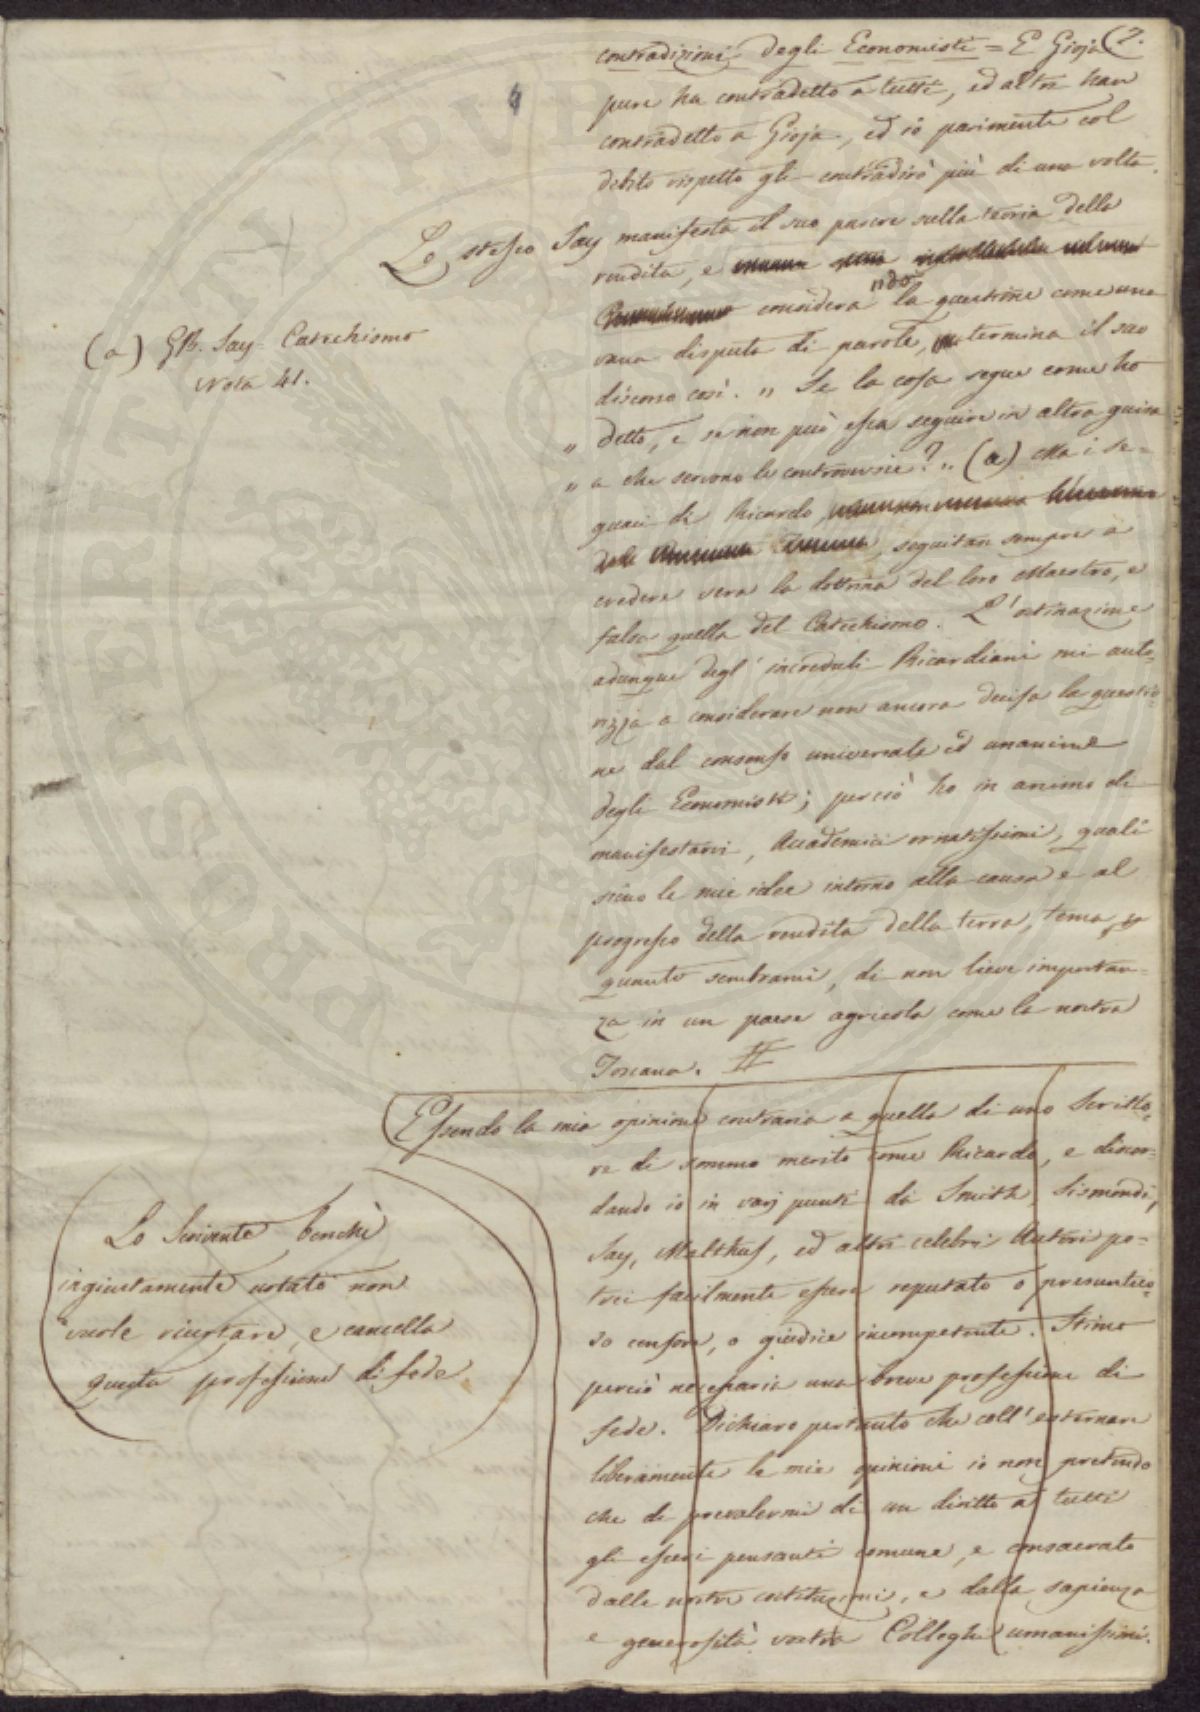 (7.
contradizioni degli Economisti = E Gioja
pure ha contradetto a tutti, ed altri han
contradetto a Gioja, ed io parimente col
debito rispetto gli contradirò più di una volta.
Lo stesso Say manifesta il suo parere sulla teoria della
rendita, e
"do
considera la questione come una
vana disputa di parole, termina il suo
discorso così. „ Se la cosa segue come ho
„ detto, e se non può essa seguire in altra guisa
„ a che servono le controversie? „ (a) Ma i se=
guaci di Ricardo
, seguitan sempre a
credere vera la dottrina del loro Maestro, e
falsa quella del Catechismo. L'ostinazione
adunque degl' increduli Ricardiani mi auto=
rizza a considerare non ancora decisa la questio=
ne dal consenso universale ed unanime
degli Economisti; perciò ho in animo di
manifestarvi, Accademici ornatissimi, quali
sieno le mie idee intorno alla causa e al
progresso della rendita della terra, tema,
quanto sembrami, di non lieve importan=
za in un paese agricola come la nostra
Toscana. #
(a) GB. Say Catechismo
Nota 41.
Essendo la mia opinione contraria a quella di uno Scritto=
re di sommo merito come Ricardo, e discor=
dando io in varj punti da Smith, Sismondi,
Say, Malthus, ed altri celebri Autori po=
trei facilmente essere reputato o presuntuo=
so censore, o giudice incompetente. Stimo
perciò necessaria una breve professione di
fede. Dichiaro pertanto che coll' esternare
liberamente le mie opinioni io non pretendo
che di prevalermi di un diritto a tutti
gli esseri pensanti comune, e consacrato
dalle nostre costituzioni, e dalla sapienza
e generosità vostra Colleghi umanissimi.
Lo Scrivente benchè
ingiustamente notato non
vuole ricurtare, e cancella
questa professione di fede